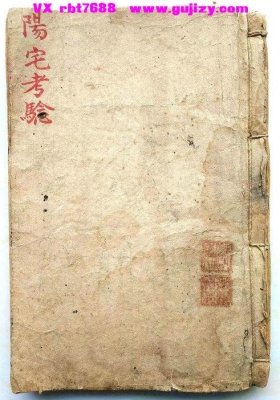 VX rbt7688  www.gujizy.com
陽宅考驗